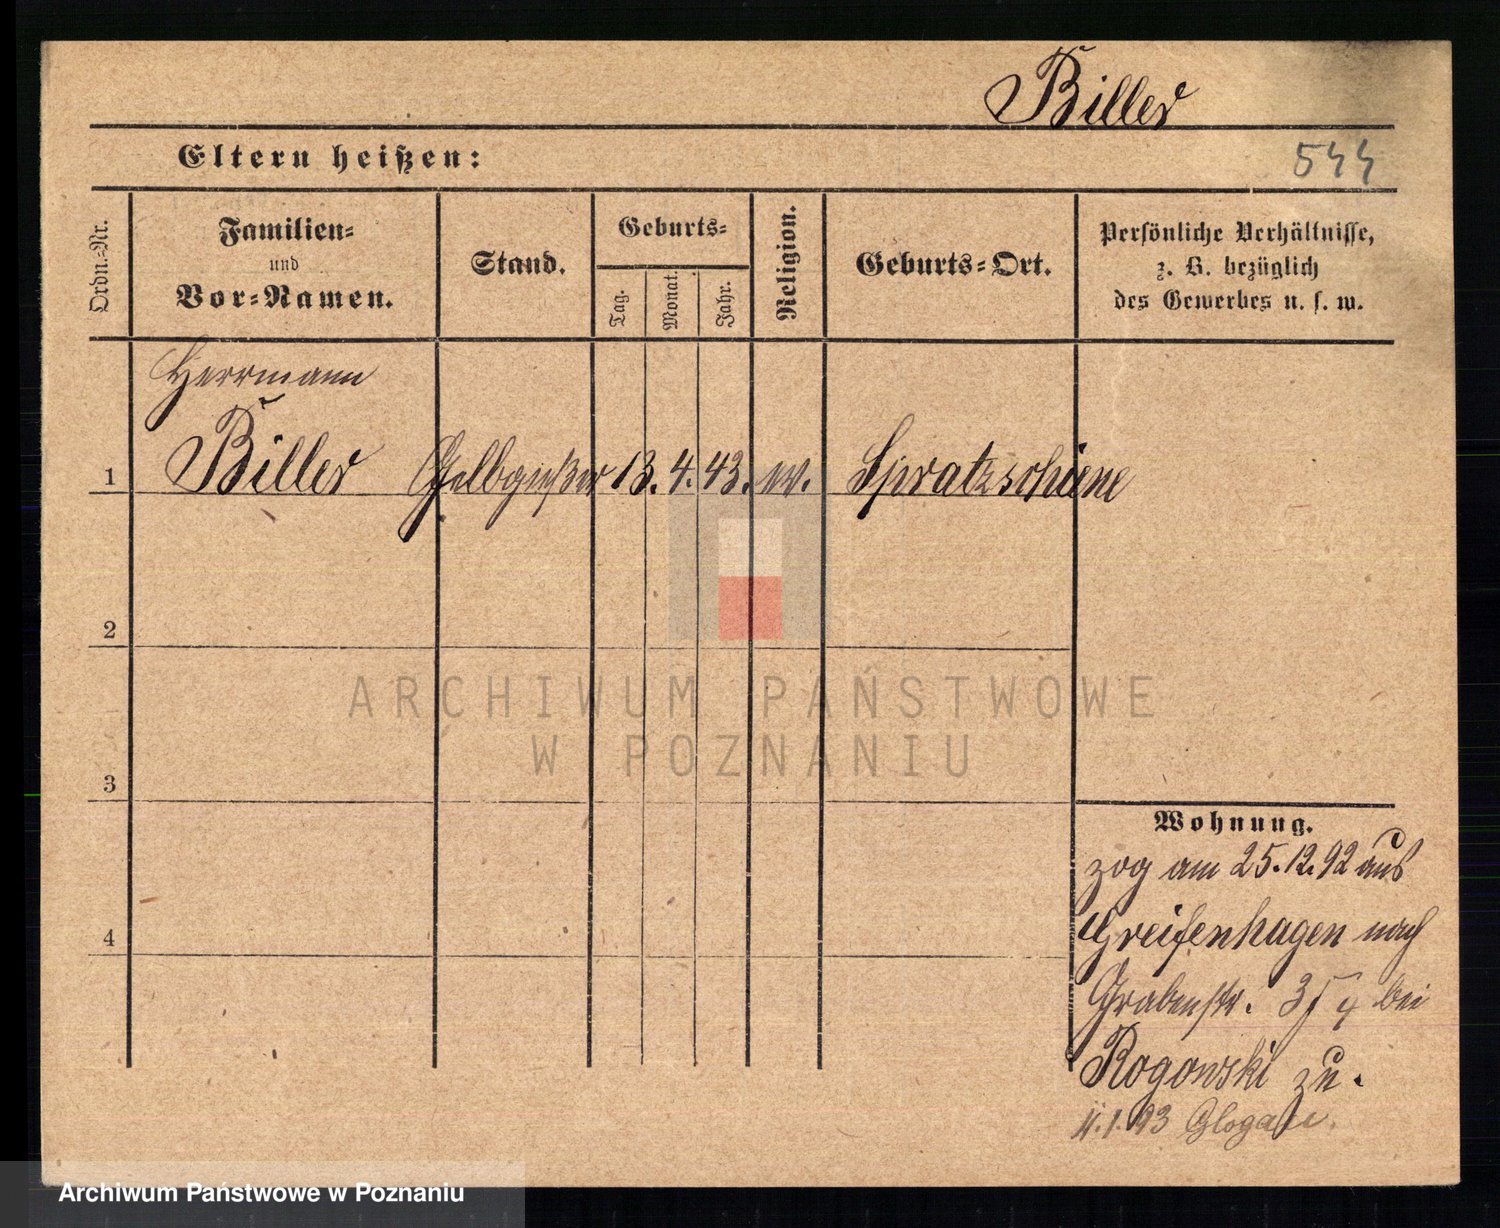 Biller
Eltern heißen:
544
Ordn.-Nr.
Familien-
und
Vor-Namen.
Stand.
Geburts-
Tag.
Monat.
Jahr.
Religion.
Geburts-Ort.
Persönliche Verhältnisse,
z. B. bezüglich
des Gewerbes u. s. w.
Herrmann
1 Biller Gelbgießer 13. 4. 43. ev.
2
3
4
Wohnung.
zog am 25.12.92 aus
Greifenhagen nach
Grabenstr. 3 bei
Rogowski zu.
ARCHIWUM PAŃSTWOWE
W POZNANIU
Archiwum Państwowe w Poznaniu